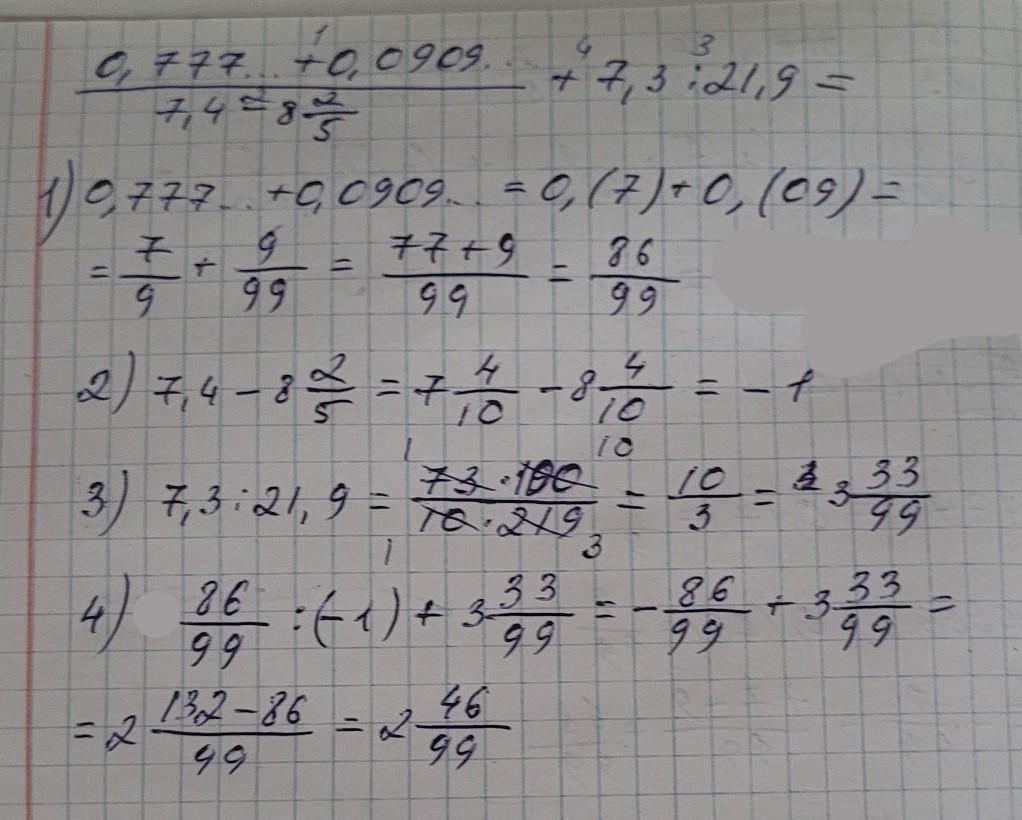 (0,777... + 0,0909...)/(7,4 - 8 2/5) + 7,3 : 21,9 =
1) 0,777... + 0,0909... = 0,(7) + 0,(09) =
= 7/9 + 9/99 = (77+9)/99 = 86/99
2) 7,4 - 8 2/5 = 7 4/10 - 8 4/10 = -1
3) 7,3 : 21,9 = (73 · 100)/(10 · 219) = 10/3 = 3 33/99
4) 86/99 : (-1) + 3 33/99 = - 86/99 + 3 33/99 =
= 2 (132-86)/99 = 2 46/99